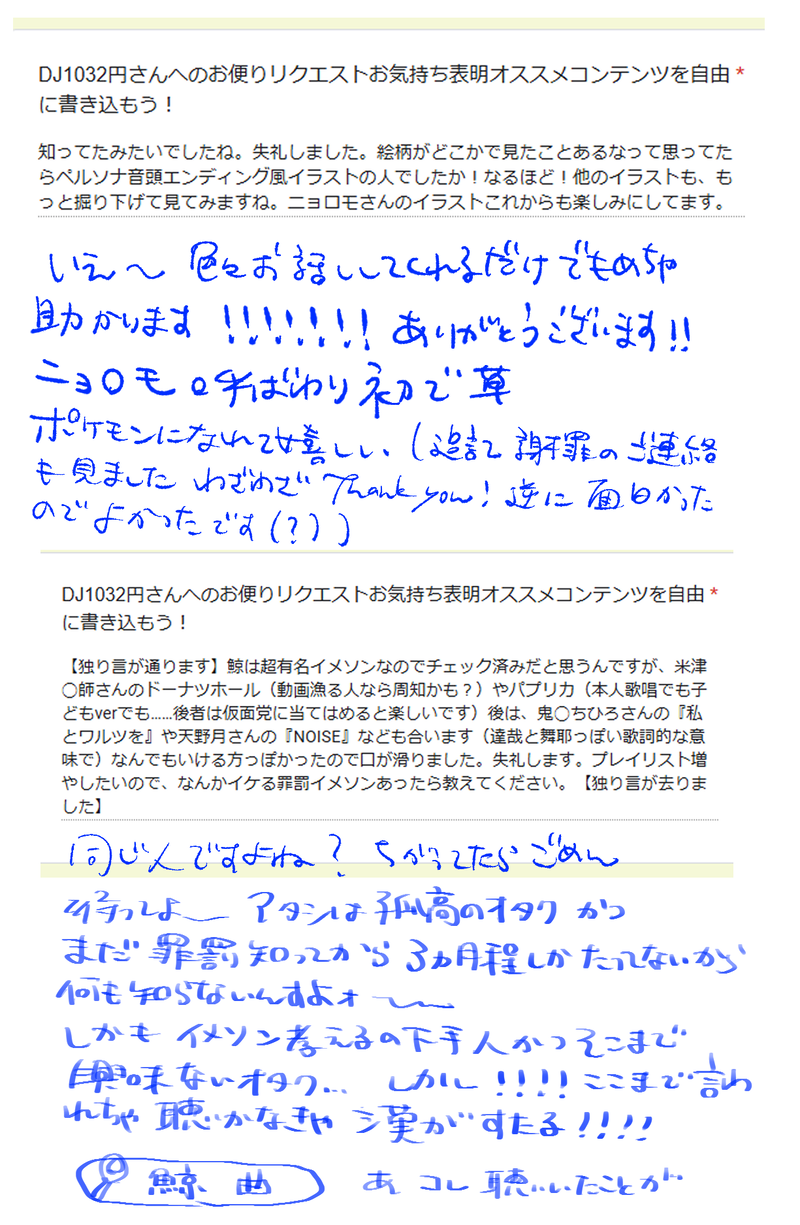 DJ1032円さんへのお便りリクエストお気持ち表明オススメコンテンツを自由 *
に書き込もう！
知ってたみたいでしたね。失礼しました。絵柄がどこかで見たことあるなって思ってた
らペルソナ音頭エンディング風イラストの人でしたか！なるほど！他のイラストも、も
っと掘り下げて見てみますね。ニョロモさんのイラストこれからも楽しみにしてます。
いえ〜 色々お話ししてくれるだけでもめちゃ
助かります !!!!!!!! ありがとうございます!!
ニョロモ呼ばわり初で草
ポケモンになれて嬉しい、(追記で 謝罪のご連絡
も見ました わざわざ Thank you! 逆に 面白かった
のでよかったです(?))
DJ1032円さんへのお便りリクエストお気持ち表明オススメコンテンツを自由 *
に書き込もう！
【独り言が通ります】鯨は超有名イメソンなのでチェック済みだと思うんですが、米津
〇師さんのドーナツホール（動画漁る人なら周知かも？）やパプリカ（本人歌唱でも子
どもverでも……後者は仮面党に当てはめると楽しいです）後は、鬼〇ちひろさんの『私
とワルツを』や天野月さんの『NOISE』なども合います（達哉と舞耶っぽい歌詞的な意
味で）なんでもいける方っぽかったので口が滑りました。失礼します。プレイリスト増
やしたいので、なんかイケる罪罰イメソンあったら教えてください。【独り言が去りま
した】
同じ人ですよね？ ちがってたらごめん
待ってよ〜 アタシは孤高のオタク かつ
まだ 罪罰知ってから 3ヵ月程しかたってないから
何も知らないんすよォ〜〜
しかも イメソン考えるの下手人かつそこまで
興味ないオタク… しかし !!!! ここまで言わ
れちゃ 聴かなきゃ 漢がすたる!!!!
鯨 曲 あ コレ 聴いたことが